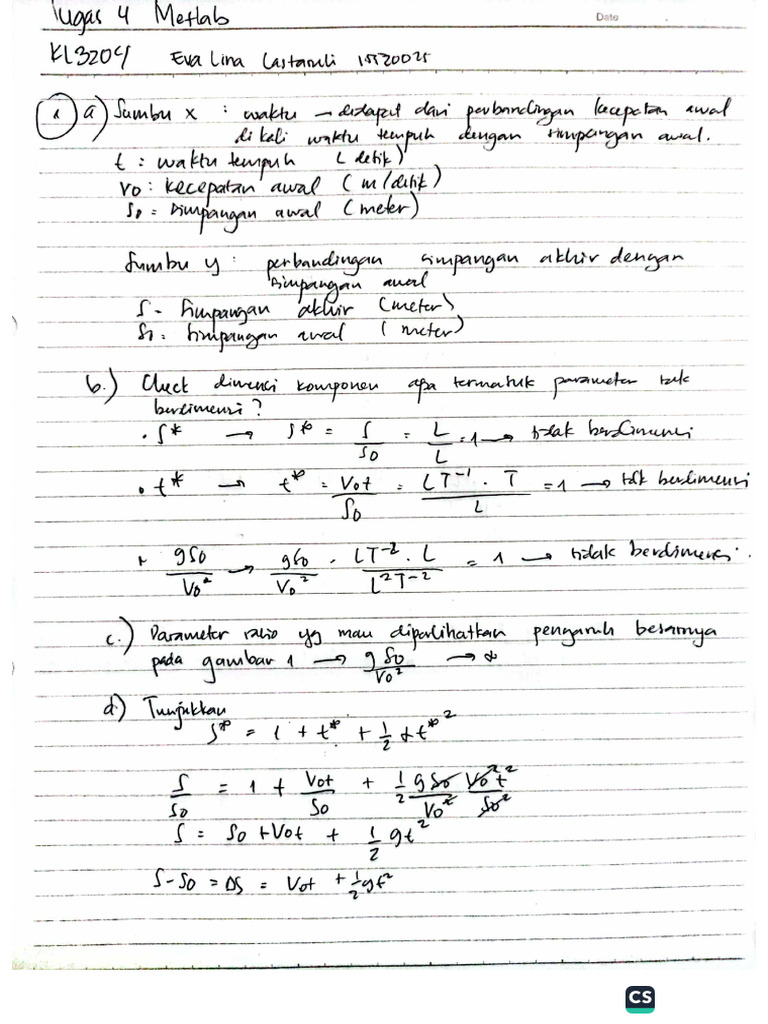 Tugas 4 Metlab
Date
KL3204 Eva Lina Lastaruli 15520025
1 a) Sumbu x : waktu → didapat dari perbandingan kecepatan awal
dikali waktu tempuh dengan simpangan awal.
t : waktu tempuh (detik)
Vo : kecepatan awal (m/detik)
So = Simpangan awal (meter)
Sumbu y : perbandingan simpangan akhir dengan
simpangan awal
S = Simpangan akhir (meter)
So = Simpangan awal (meter)
b.) Check dimensi komponen apa termasuk parameter tak
berdimensi?
• S* → S* = S/So = L/L = 1 → tidak berdimensi
• t* → t* = Vot/So = LT⁻¹ . T/L = 1 → tdk berdimensi
• gSo/Vo² → gSo/Vo² . LT⁻² . L/L²T⁻² = 1 → tidak berdimensi.
c.) Parameter rasio yg mau diperlihatkan pengaruh besarnya
pada gambar 1 → gSo/Vo² → α
d) Tunjukkan
S* = 1 + t* + 1/2 αt*²
S/So = 1 + Vot/So + 1/2 gSo/Vo² Vo²t²/So²
S = So + Vot + 1/2 gt²
S - So = ΔS = Vot + 1/2 gt²
CS